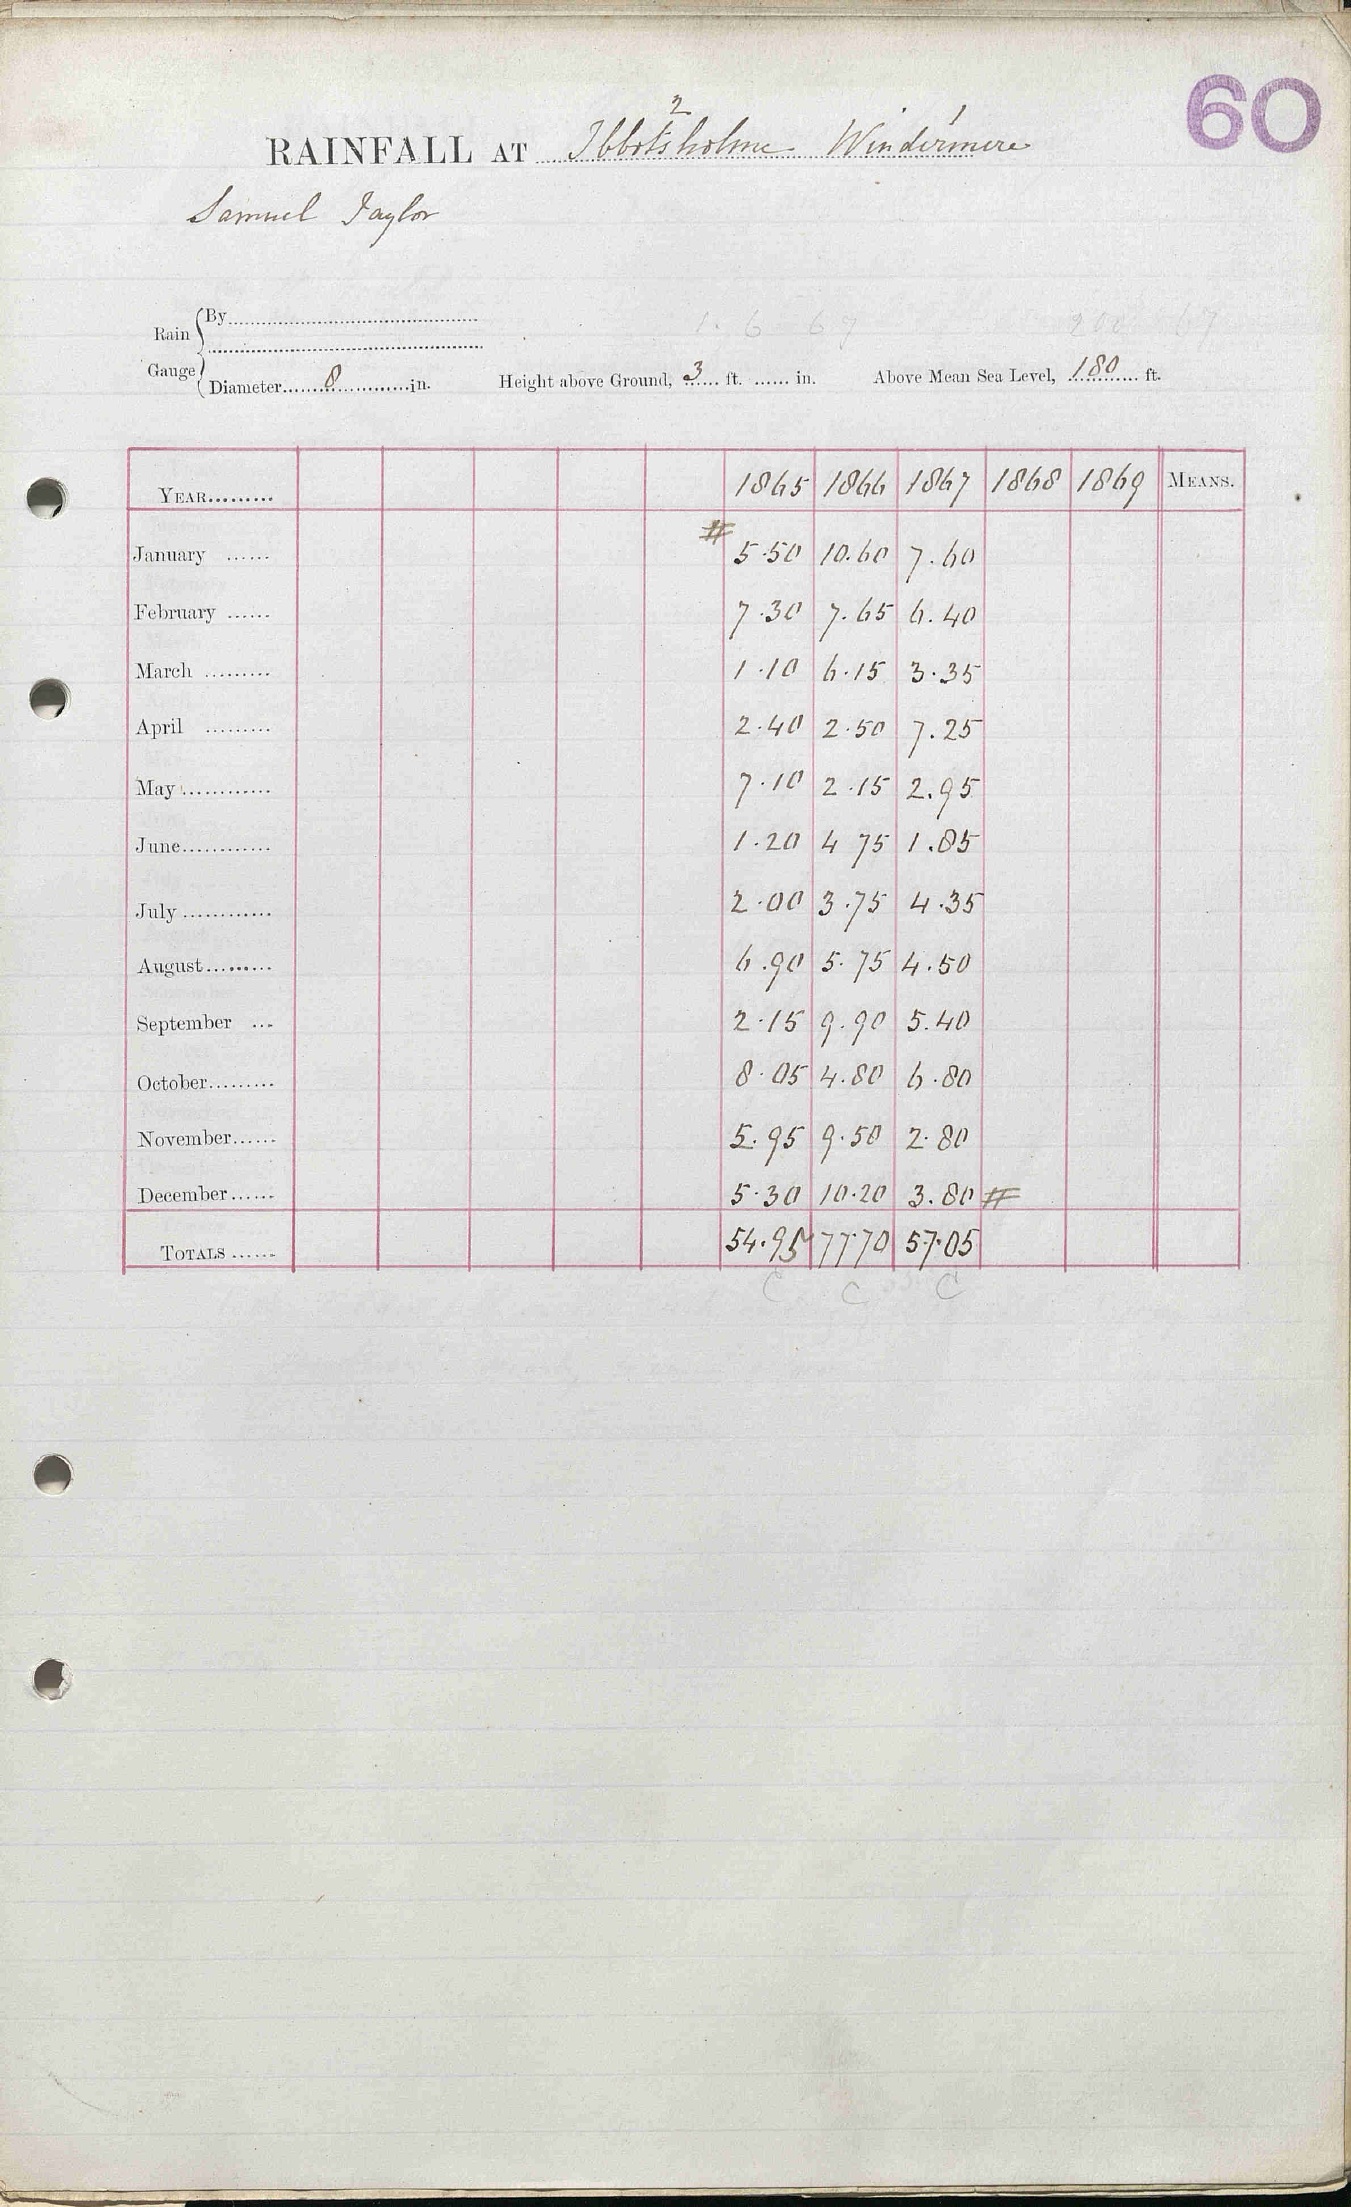 60
2 1
RAINFALL AT Ibbotsholme Windermere
Samuel Taylor
1. 6 67 200 67
Rain Gauge { By........
Diameter......8......in. Height above Ground, 3 ft. ...... in. Above Mean Sea Level, 180 ft.
YEAR......... 1865 1866 1867 1868 1869 MEANS.
January ...... # 5.50 10.60 7.60
February ...... 7.30 7.65 6.40
March ......... 1.10 6.15 3.35
April ......... 2.40 2.50 7.25
May............ 7.10 2.15 2.95
June............ 1.20 4 75 1.85
July............ 2.00 3.75 4.35
August......... 6.90 5.75 4.50
September ... 2.15 9.90 5.40
October......... 8.05 4.80 6.80
November...... 5.95 9.50 2.80
December...... 5.30 10.20 3.80 #
TOTALS ...... 54.95 77.70 57.05
C C C